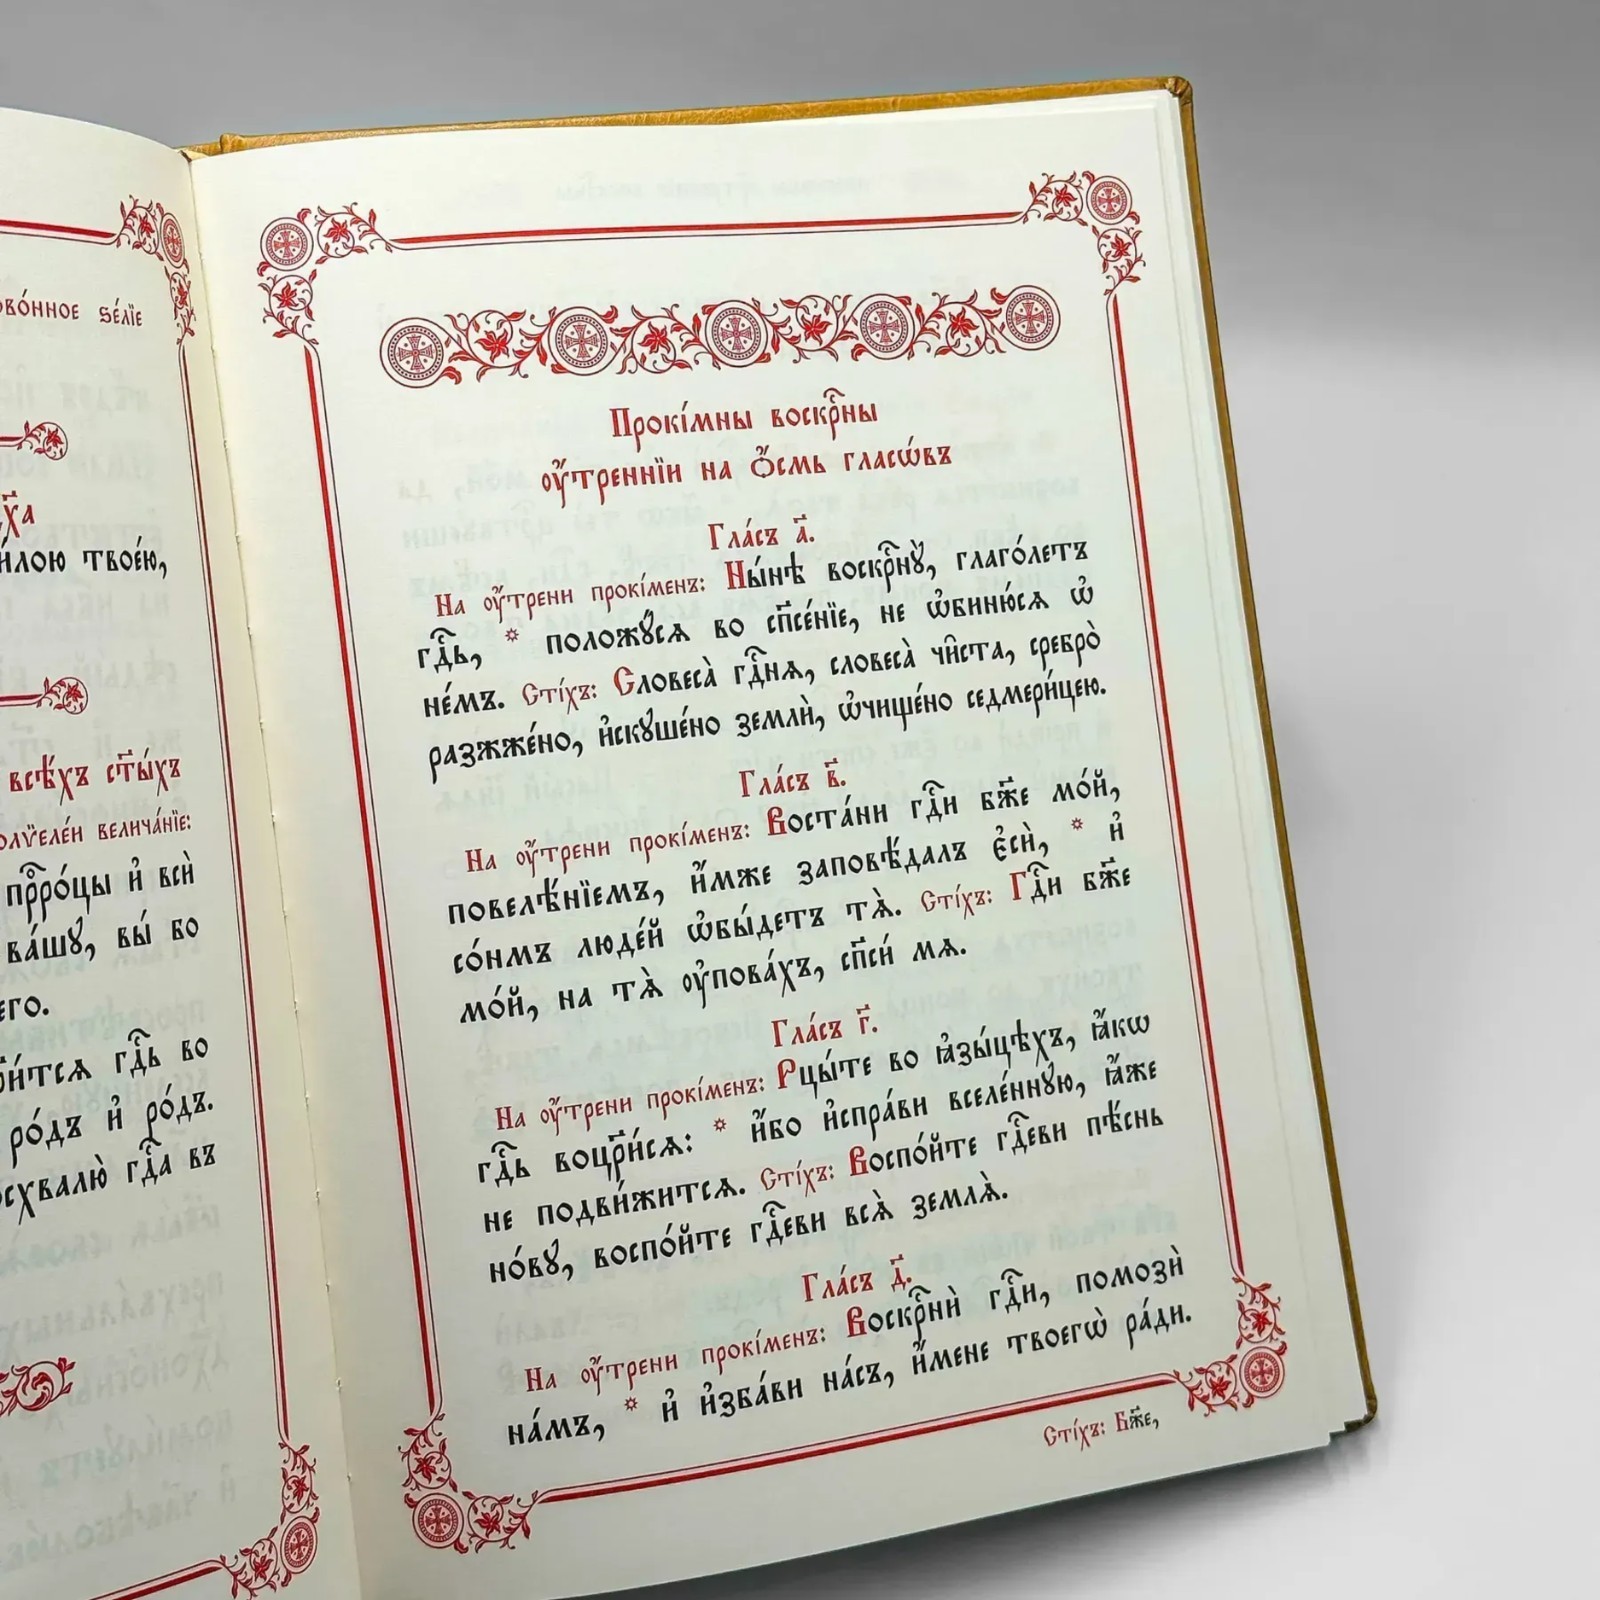 вонное ѕе́лїе
и́лою твоє́ю,
всѣ́хъ ст҃ы́хъ
велича́нїе:
прⷪ҇ро́цы и҆ всѝ
ва́шꙋ, вы́ бо
его.
гдⷭ҇ь во
ро́дъ и҆ ро́дъ.
гдⷭ҇а въ
Прокі́мны воскрⷭ҇ны
ᲂу҆́треннїи на ѻ҆́смь гласѡ́въ
Гла́съ а҃.
На ᲂу҆́трени прокі́менъ: Ны́нѣ воскрⷭ҇нꙋ̀, глаго́летъ
гдⷭ҇ь, * положꙋ́сѧ во сп҃се́нїе, не ѡ҆биню́сѧ ѡ҆
не́мъ. Сті́хъ: Словеса̀ гдⷭ҇нѧ, словеса̀ чи̑ста, сребро̀
разжже́но, и҆скꙋше́но землѝ, ѡ҆чище́но седмери́цею.
Гла́съ в҃.
На ᲂу҆́трени прокі́менъ: Воста́ни гдⷭ҇и бж҃е мо́й,
повелѣ́нїемъ, и҆́мже заповѣ́далъ є҆сѝ, * и҆
со́нмъ люде́й ѡ҆бы́детъ тѧ̀. Сті́хъ: Гдⷭ҇и бж҃е
мо́й, на тѧ̀ ᲂу҆пова́хъ, сп҃си́ мѧ.
Гла́съ г҃.
На ᲂу҆́трени прокі́менъ: Рцы́те во ꙗ҆зы́цѣхъ, ꙗ҆́кѡ
гдⷭ҇ь воцр҃и́сѧ: * и҆́бо и҆спра́ви вселе́ннꙋю, ꙗ҆́же
не подви́жится. Сті́хъ: Воспо́йте гдⷭ҇еви пѣ́снь
но́вꙋ, воспо́йте гдⷭ҇еви всѧ̀ землѧ̀.
Гла́съ д҃.
На ᲂу҆́трени прокі́менъ: Воскрⷭ҇нѝ гдⷭ҇и, помозѝ
на́мъ, * и҆ и҆зба́ви на́съ, и҆́мене твоегѡ̀ ра́ди.
Сті́хъ: Бж҃е,